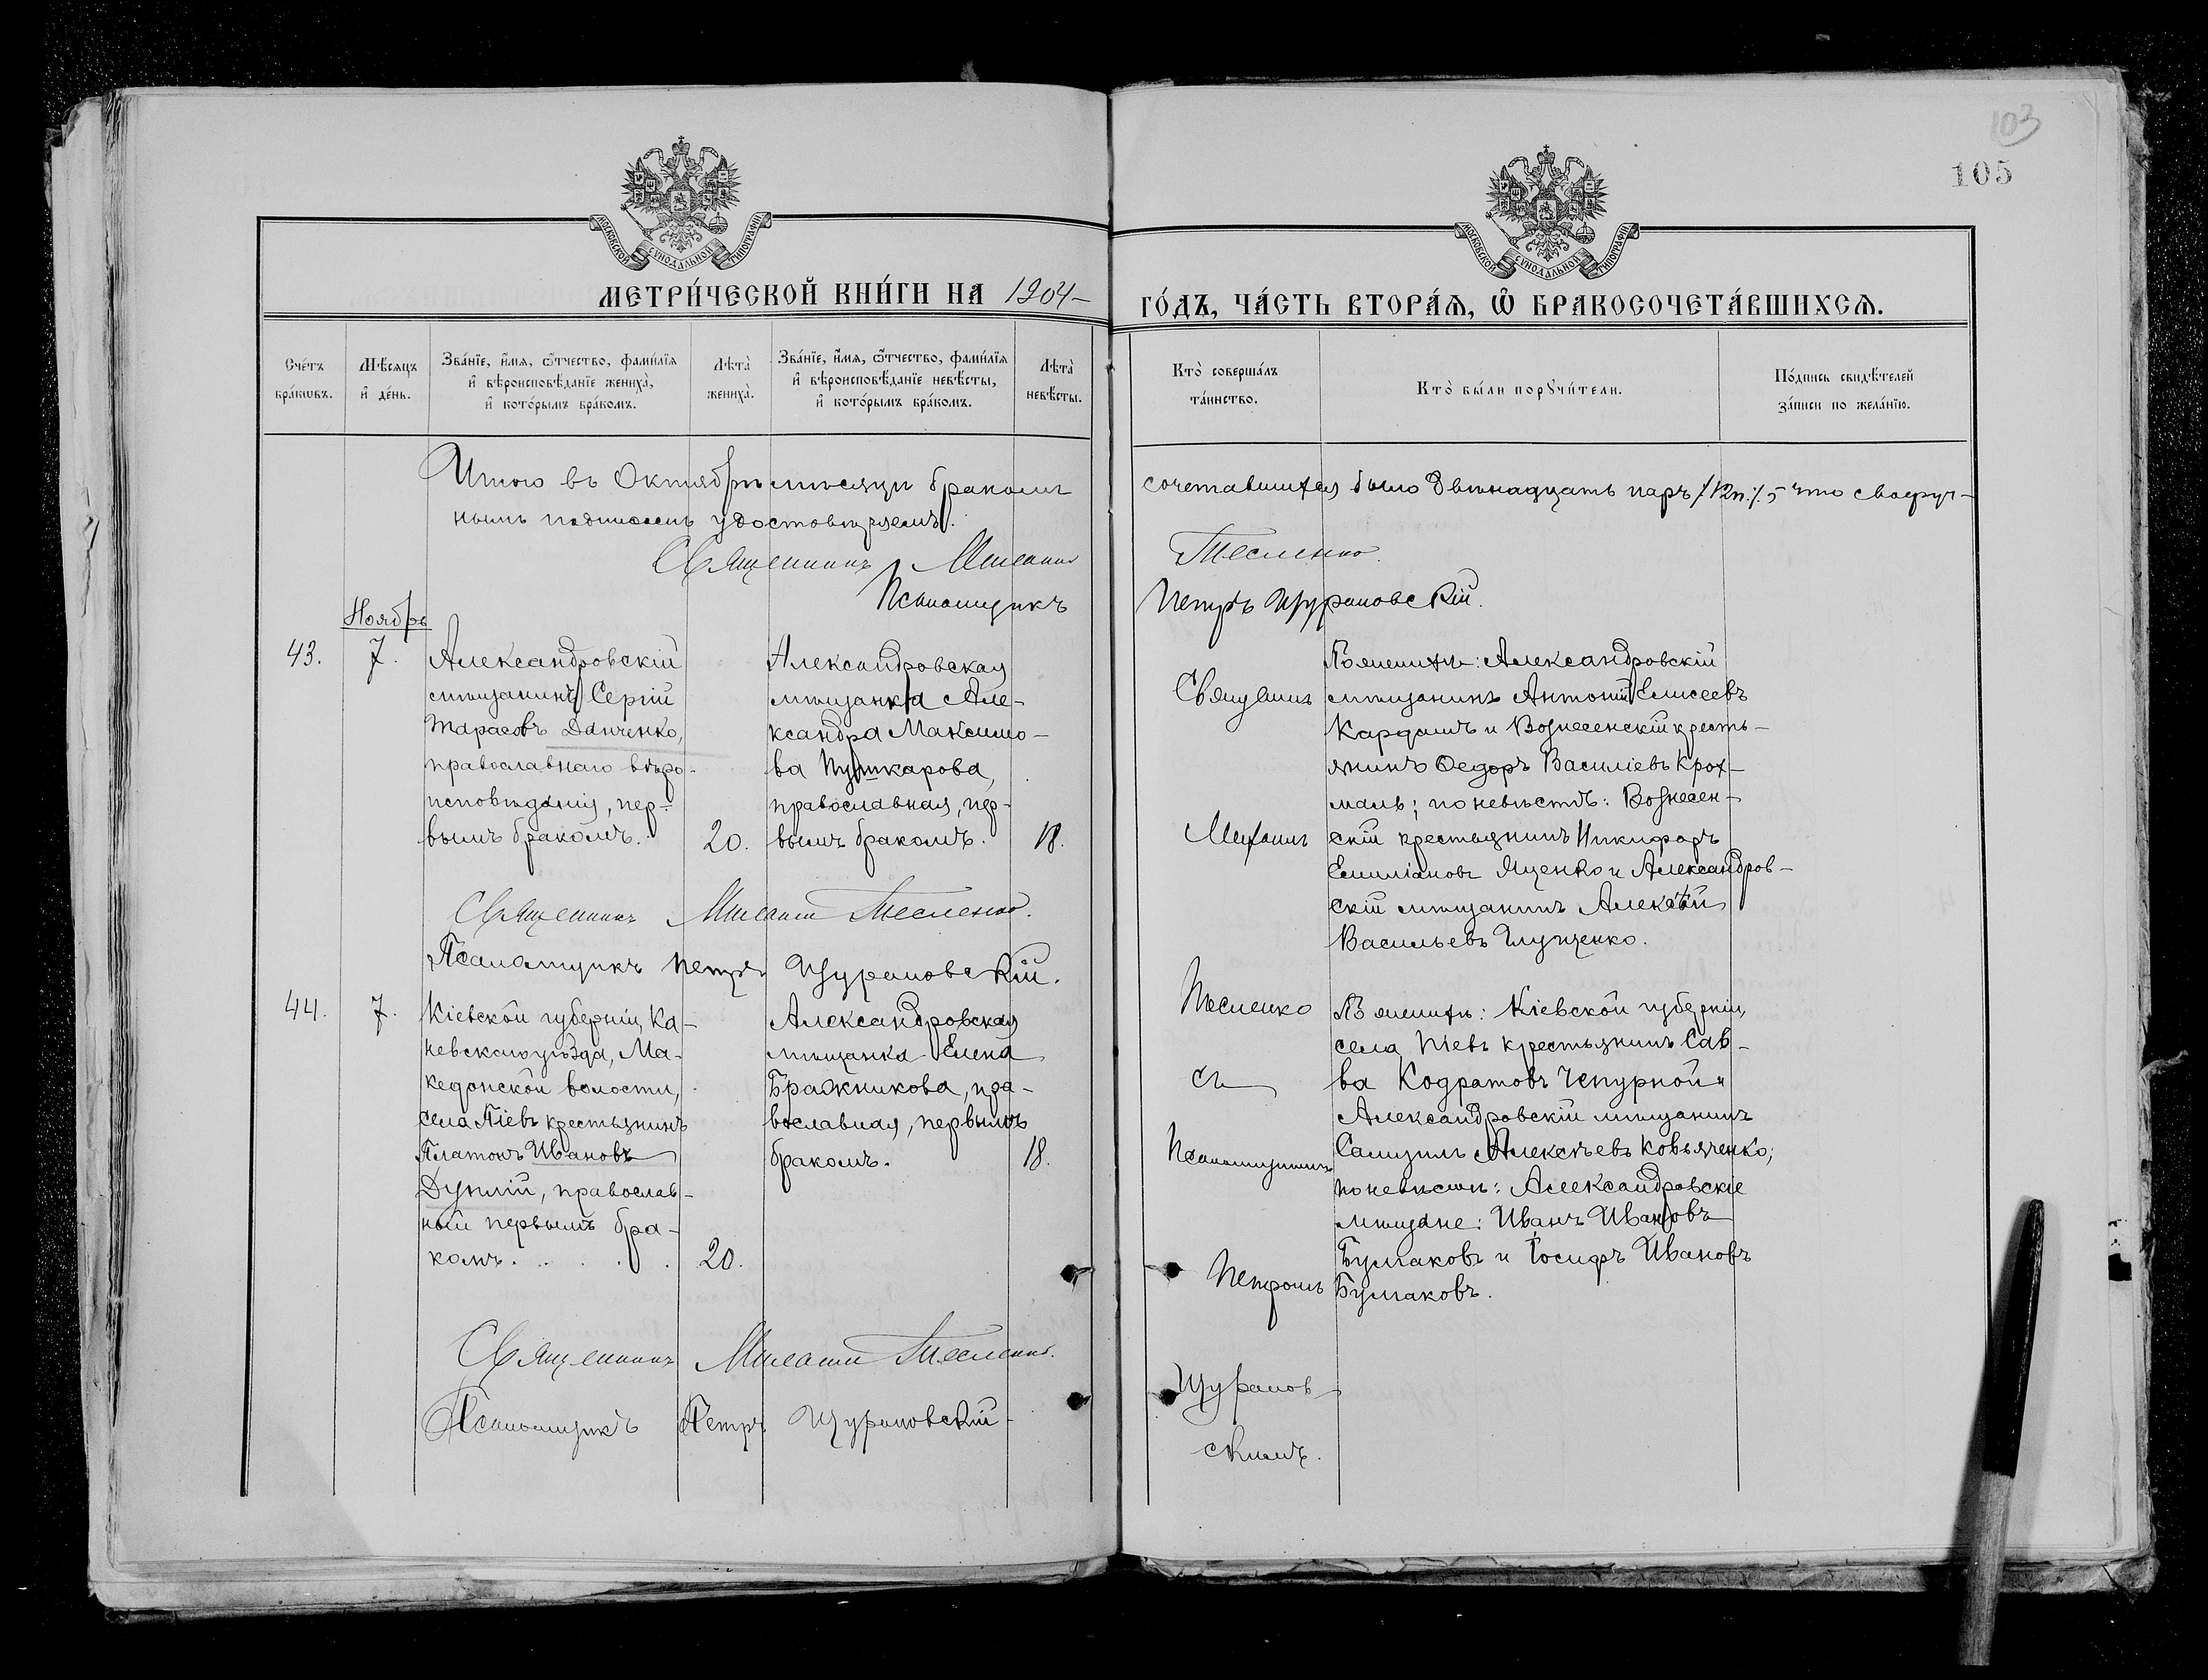 103
105
МОСКОВСКОЙ СѴНОДАЛЬНОЙ ТИПОГРАФІИ
МОСКОВСКОЙ СѴНОДАЛЬНОЙ ТИПОГРАФІИ
МЕТРИ́ЧЕСКОЙ КНИ́ГИ НА 1904 ГО́ДЪ, ЧА́СТЬ ВТОРА́Ѧ, Ѡ БРАКОСОЧЕТА́ВШИХСѦ.
Сче́тъ
бра́кωвъ.
Мѣ́сѧцъ
и҆ де́нь.
Зва́нїе, и҆́мѧ, ѻ҆́тчество, фами́лїѧ
и҆ вѣроисповѣ́данїе жениха̀,
и҆ кото́рымъ бра́комъ.
Лѣ́та
жениха̀.
Зва́нїе, и҆́мѧ, ѻ҆́тчество, фами́лїѧ
и҆ вѣроисповѣ́данїе невѣ́сты,
и҆ кото́рымъ бра́комъ.
Лѣ́та
невѣ́сты.
Кто̀ соверша́лъ
та́инство.
Кто̀ бы́ли порꙋчи́тели.
По́дпись свидѣ́телей
за́писи по жела́нїю.
Итого въ Октябрѣ мѣсяцѣ бракомъ сочетавшихся было двѣнадцать паръ /12п./, что своеруч-
нымъ подписомъ удостовѣряемъ.
Священникъ Михаилъ Тесленко.
Псаломщикъ Петръ Щурановскій.
Ноябрь
43.
7.
Александровскій
мѣщанинъ Сергій
Тарасовъ Данченко,
православнаго вѣро-
исповѣданія, пер-
вымъ бракомъ.
20.
Александровская
мѣщанка Але-
ксандра Максимо-
ва Пушкарова,
православная, пер-
вымъ бракомъ.
18.
По женихѣ: Александровскій
мѣщанинъ Антоній Елисеевъ
Кардашъ и Вознесенскій кресть-
янинъ Ѳедоръ Василіевъ Крох-
маль; по невѣстѣ: Вознесен-
скій крестьянинъ Никифоръ
Емиліановъ Яценко и Александров-
скій мѣщанинъ Алексѣй
Васильевъ Глущенко.
Священникъ Михаилъ Тесленко.
Псаломщикъ Петръ Щурановскій.
44.
7.
Кіевской губерніи, Ка-
невскаго уѣзда, Ма-
кедонской волости,
села Піевъ крестьянинъ
Платонъ Ивановъ
Дуплій, православ-
ный первымъ бра-
комъ.
20.
Александровская
мѣщанка Елена
Бражникова, пра-
вославная, первымъ
бракомъ.
18.
По женихѣ: Кіевской губерніи,
села Піевъ крестьянинъ Сав-
ва Кодратовъ Чепурной и
Александровскій мѣщанинъ
Самуилъ Алексѣевъ Ковьяченко;
по невѣстѣ: Александровскіе
мѣщане: Иванъ Ивановъ
Булгаковъ и Іосифъ Ивановъ
Булгаковъ.
Священникъ
Михаилъ
Тесленко
съ
Псаломщикомъ
Петромъ
Щуранов-
скимъ.
Священникъ Михаилъ Тесленко.
Псаломщикъ Петръ Щурановскій